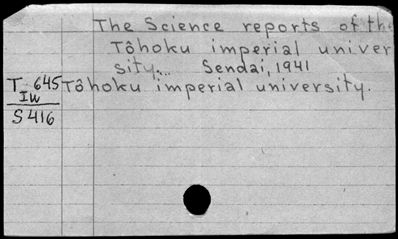 The Science reports of the
Tôhoku imperial univer
sity... Sendai, 1941
T-645 Tôhoku imperial university.
Iw
S416